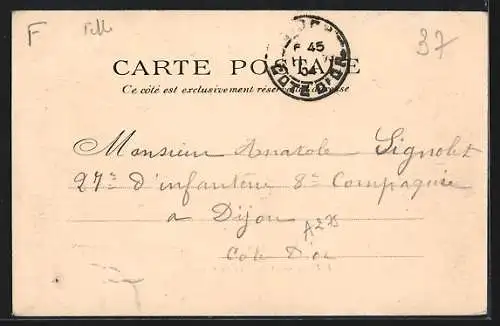 F
37
F 45
04
COTE D'OR
CARTE POSTALE
Ce côté est exclusivement réservé à l'adresse
Monsieur Anatole Signolet
27e d'infanterie 8e Compagnie
a Dijon
A275
Cote d'or